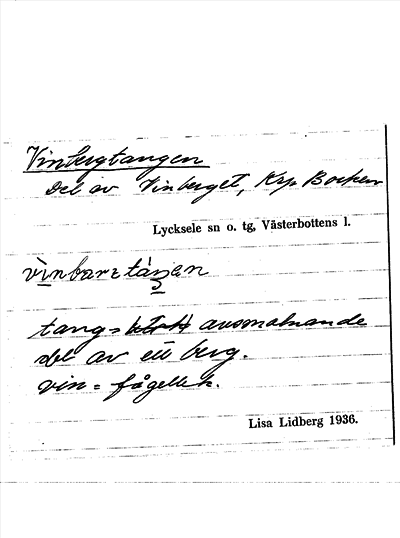 Vinbergtangen
Del av Vinberget, Krp Bocken
Lycksele sn o. tg, Västerbottens l.
vìnbarɛtáŋen
tang = avsmalnande
del av ett berg.
vin = fågellek.
Lisa Lidberg 1936.